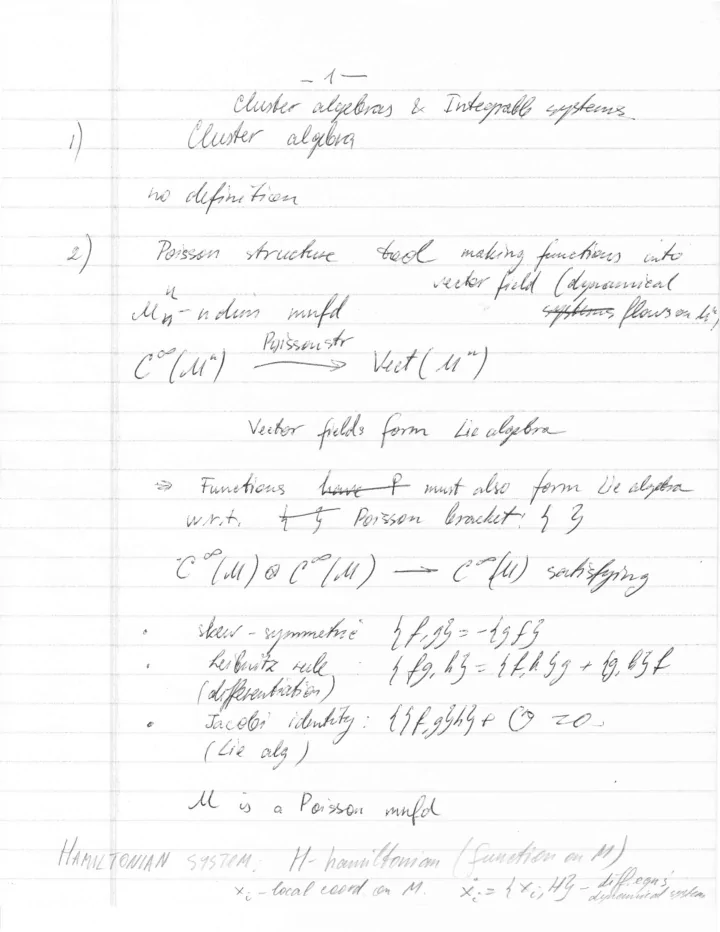 – 1 –
Cluster algebras & Integrable systems
1) Cluster algebra
no definition
2) Poisson structure tool making functions into
vector field (dynamical
Mⁿ - n dim mnfd systems flows on Mⁿ)
Poisson str
C^∞(Mⁿ) ⟶ Vect(Mⁿ)
Vector fields form Lie algebra
⇒ Functions have P must also form Lie algebra
w.r.t. { } Poisson bracket: { }
C^∞(M) ⊗ C^∞(M) → C^∞(M) satisfying
• skew-symmetric {f,g} = -{g f}
• Leibnitz rule : {fg, h} = {f,h}g + {g,h}f
(differentiation)
• Jacobi identity : {{f,g}h} + ↻ = 0.
(Lie alg)
M is a Poisson mnfd
HAMILTONIAN SYSTEM: H-hamiltonian (function on M)
xᵢ - local coord on M. ẋᵢ = {xᵢ, H} - diff. eqns;
dynamical system